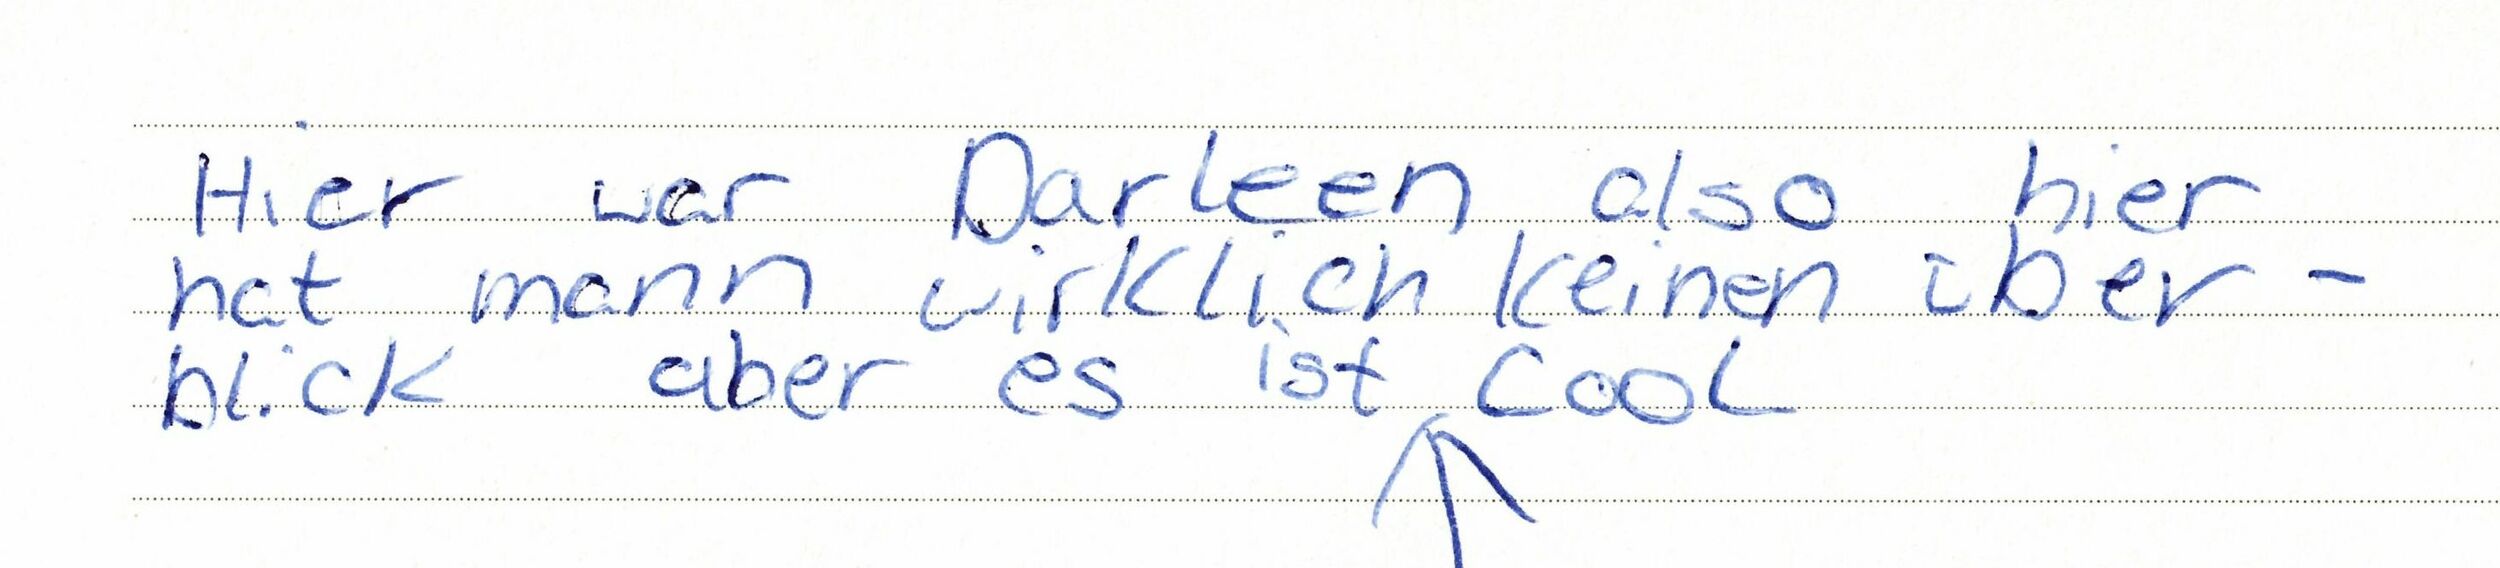 Hier war Darleen also hier
hat mann wirklich keinen über-
blick aber es ist cool